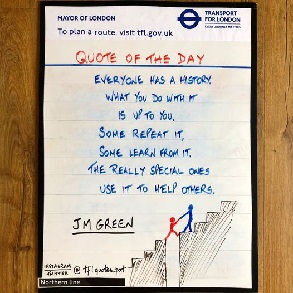 MAYOR OF LONDON
TRANSPORT
FOR LONDON
To plan a route, visit tfl.gov.uk
QUOTE OF THE DAY
EVERYONE HAS A HISTORY.
WHAT YOU DO WITH IT
IS UP TO YOU.
SOME REPEAT IT.
SOME LEARN FROM IT.
THE REALLY SPECIAL ONES
USE IT TO HELP OTHERS.
JM GREEN
INSTAGRAM
TWITTER
Northern line